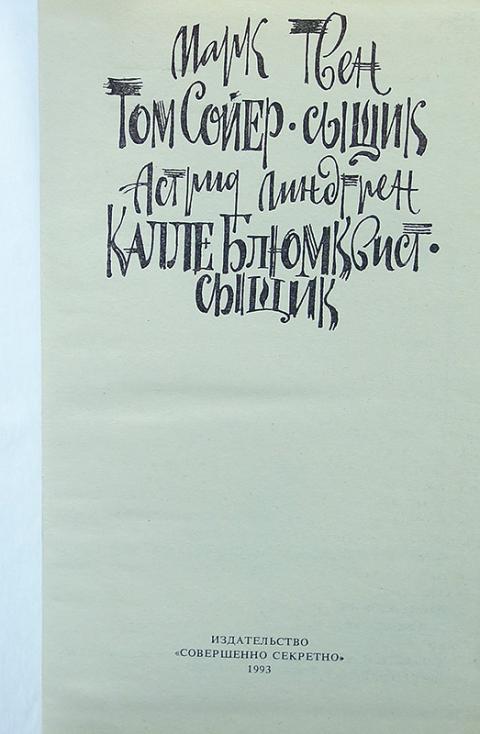 Марк Твен
Том Сойер · сыщик
Астрид Линдгрен
Калле Блюмквист ·
сыщик
ИЗДАТЕЛЬСТВО
«СОВЕРШЕННО СЕКРЕТНО»
1993